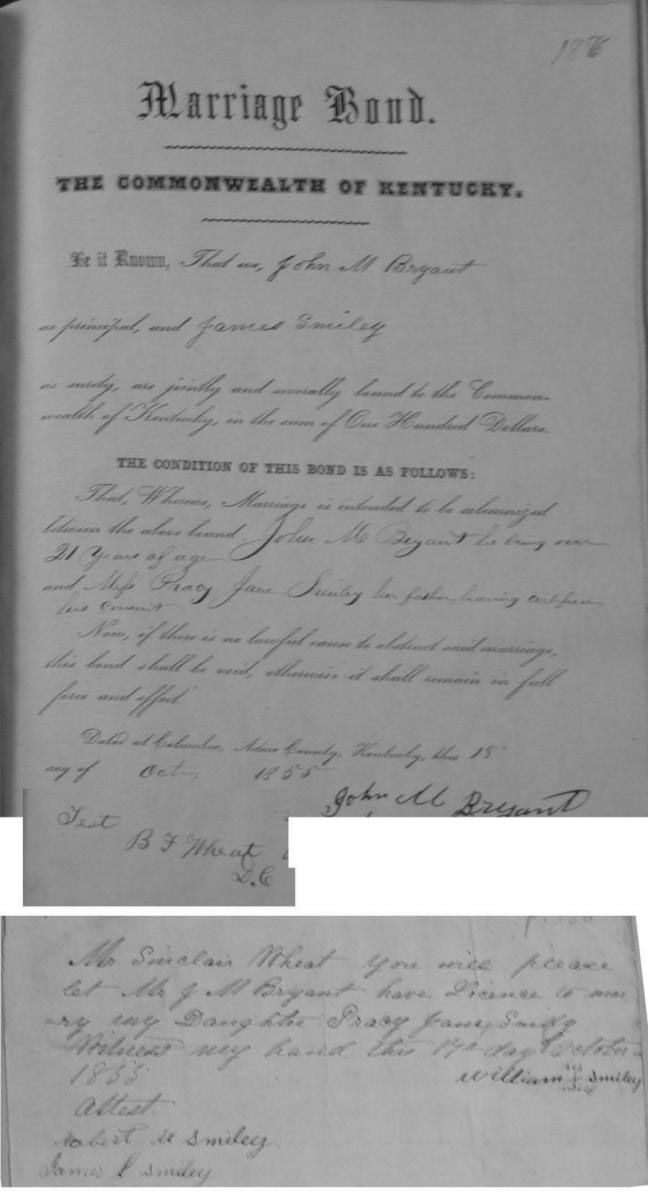 Marriage Bond.
THE COMMONWEALTH OF KENTUCKY.
Be it Known, That we, John M Bryant
as principal, and James Smiley
as surety, are jointly and severally bound to the Common-
wealth of Kentucky, in the sum of One Hundred Dollars.
THE CONDITION OF THIS BOND IS AS FOLLOWS:
That, Whereas, Marriage is intended to be solemnized
between the above bound John M Bryant he being over
21 Years of age
and Miss Pracy Jane Smiley her father having certified
his consent
Now, if there is no lawful cause to obstruct said marriage,
this bond shall be void, otherwise it shall remain in full
force and effect.
Dated at Columbia, Adair County, Kentucky, this 18
day of Oct 1855
John M Bryant
Test
B F Wheat
D.C
Mr Sinclair Wheat You will please
let Mr J M Bryant have Licence to mar
ry my Daughter Pracy Jane Smily
Witness my hand this 17th day October
1855
William Smiley
Attest
Robert Smiley
James Smiley